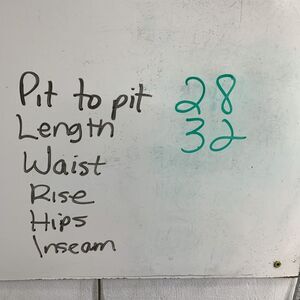 Pit to pit 28
Length 32
Waist
Rise
Hips
Inseam